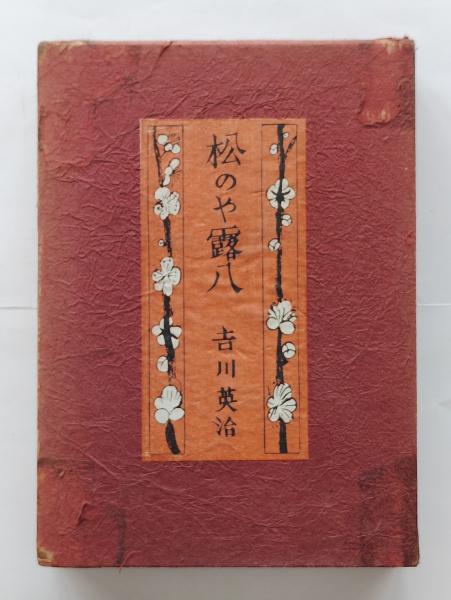 松のや露八
吉川英治